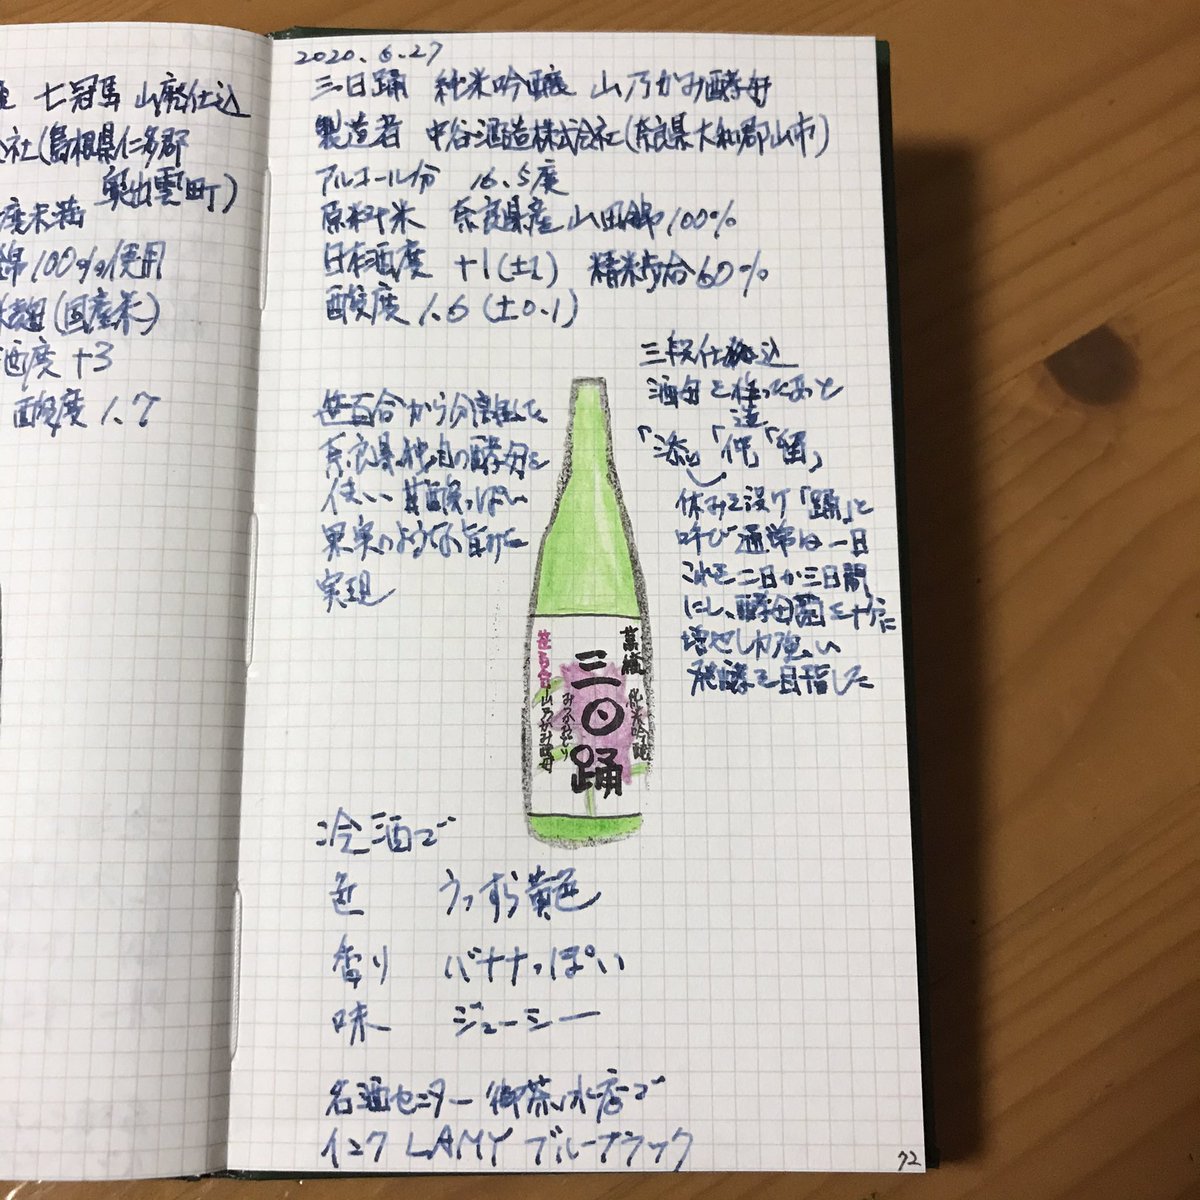 七冠馬 山廃仕込
社(島根県仁多郡
奥出雲町)
錦100%使用
麹(国産米)
酒度 +3
酸度 1.7
2020.6.27
三日踊 純米吟醸 山乃かみ酵母
製造者 中谷酒造株式会社(奈良県大和郡山市)
アルコール分 16.5度
原料米 奈良県産山田錦100%
日本酒度 +1(±1) 精米歩合60%
酸度 1.6(±0.1)
笹百合から分離した
奈良県独自の酵母を
使い 甘酸っぱい
果実のような旨みを
実現
三段仕込
酒母を作ったあと
「添」「仲」「留」
休みを設け「踊」と
呼び 通常は一日
これを二日か三日間
にし、酵母菌を十分に
増やし力強い
発酵を目指した
萬穣
純米吟醸
三日踊
みっかおどり
笹百合
山乃かみ酵母
冷酒で
色 うっすら黄色
香り バナナっぽい
味 ジューシー
名酒センター 御茶ノ水店で
インク LAMY ブルーブラック
72